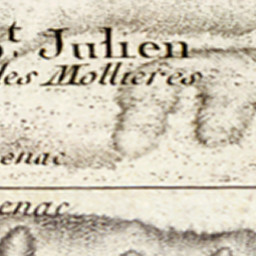 St. Julien
des Mollieres
enac
enac